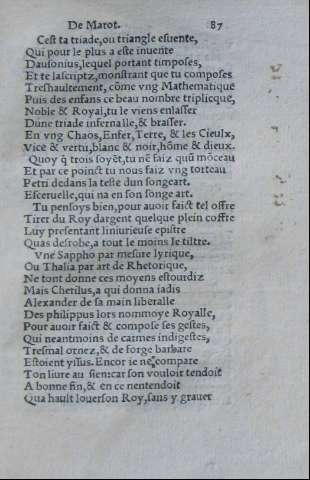 De Marot. 87
Cest ta triade, ou triangle esuente,
Qui pour le plus a este inuente
Dausonius, lequel portant timposes,
Et te lascriptz, monstrant que tu composes
Treshaultement, cõme vng Mathematique
Puis des enfans ce beau nombre triplicque,
Noble & Royal, tu le viens enlasser
Dune triade infernalle, & brasser.
En vng Chaos, Enfer, Terre, & les Cieulx,
Vice & vertu, blanc & noir, hõme & dieux.
Quoy q̃ trois soyẽt, tu nẽ faiz quũ mõceau
Et par ce poinct tu nous faiz vng torteau
Petri dedans la teste dun songeart.
Esceruelle, qui na en son songe art.
Tu pensoys bien, pour auoir faict tel offre
Tirer du Roy dargent quelque plein coffre
Luy presentant liniurieuse epistre
Quas desrobe, a tout le moins le tiltre.
Vne Sappho par mesure lyrique,
Ou Thalia par art de Rhetorique,
Ne tont donne ces moyens estourdiz
Mais Cherilus, a qui donna iadis
Alexander de sa main liberalle
Des philippus lors nommoye Royalle,
Pour auoir faict & compose ses gestes,
Qui neantmoins de carmes indigestes,
Tresmal ornez, & de forge barbare
Estoient yssus. Encor ie ne compare
Ton liure au sien: car son vouloir tendoit
A bonne fin, & en ce nentendoit
Qua hault louer son Roy, sans y grauer